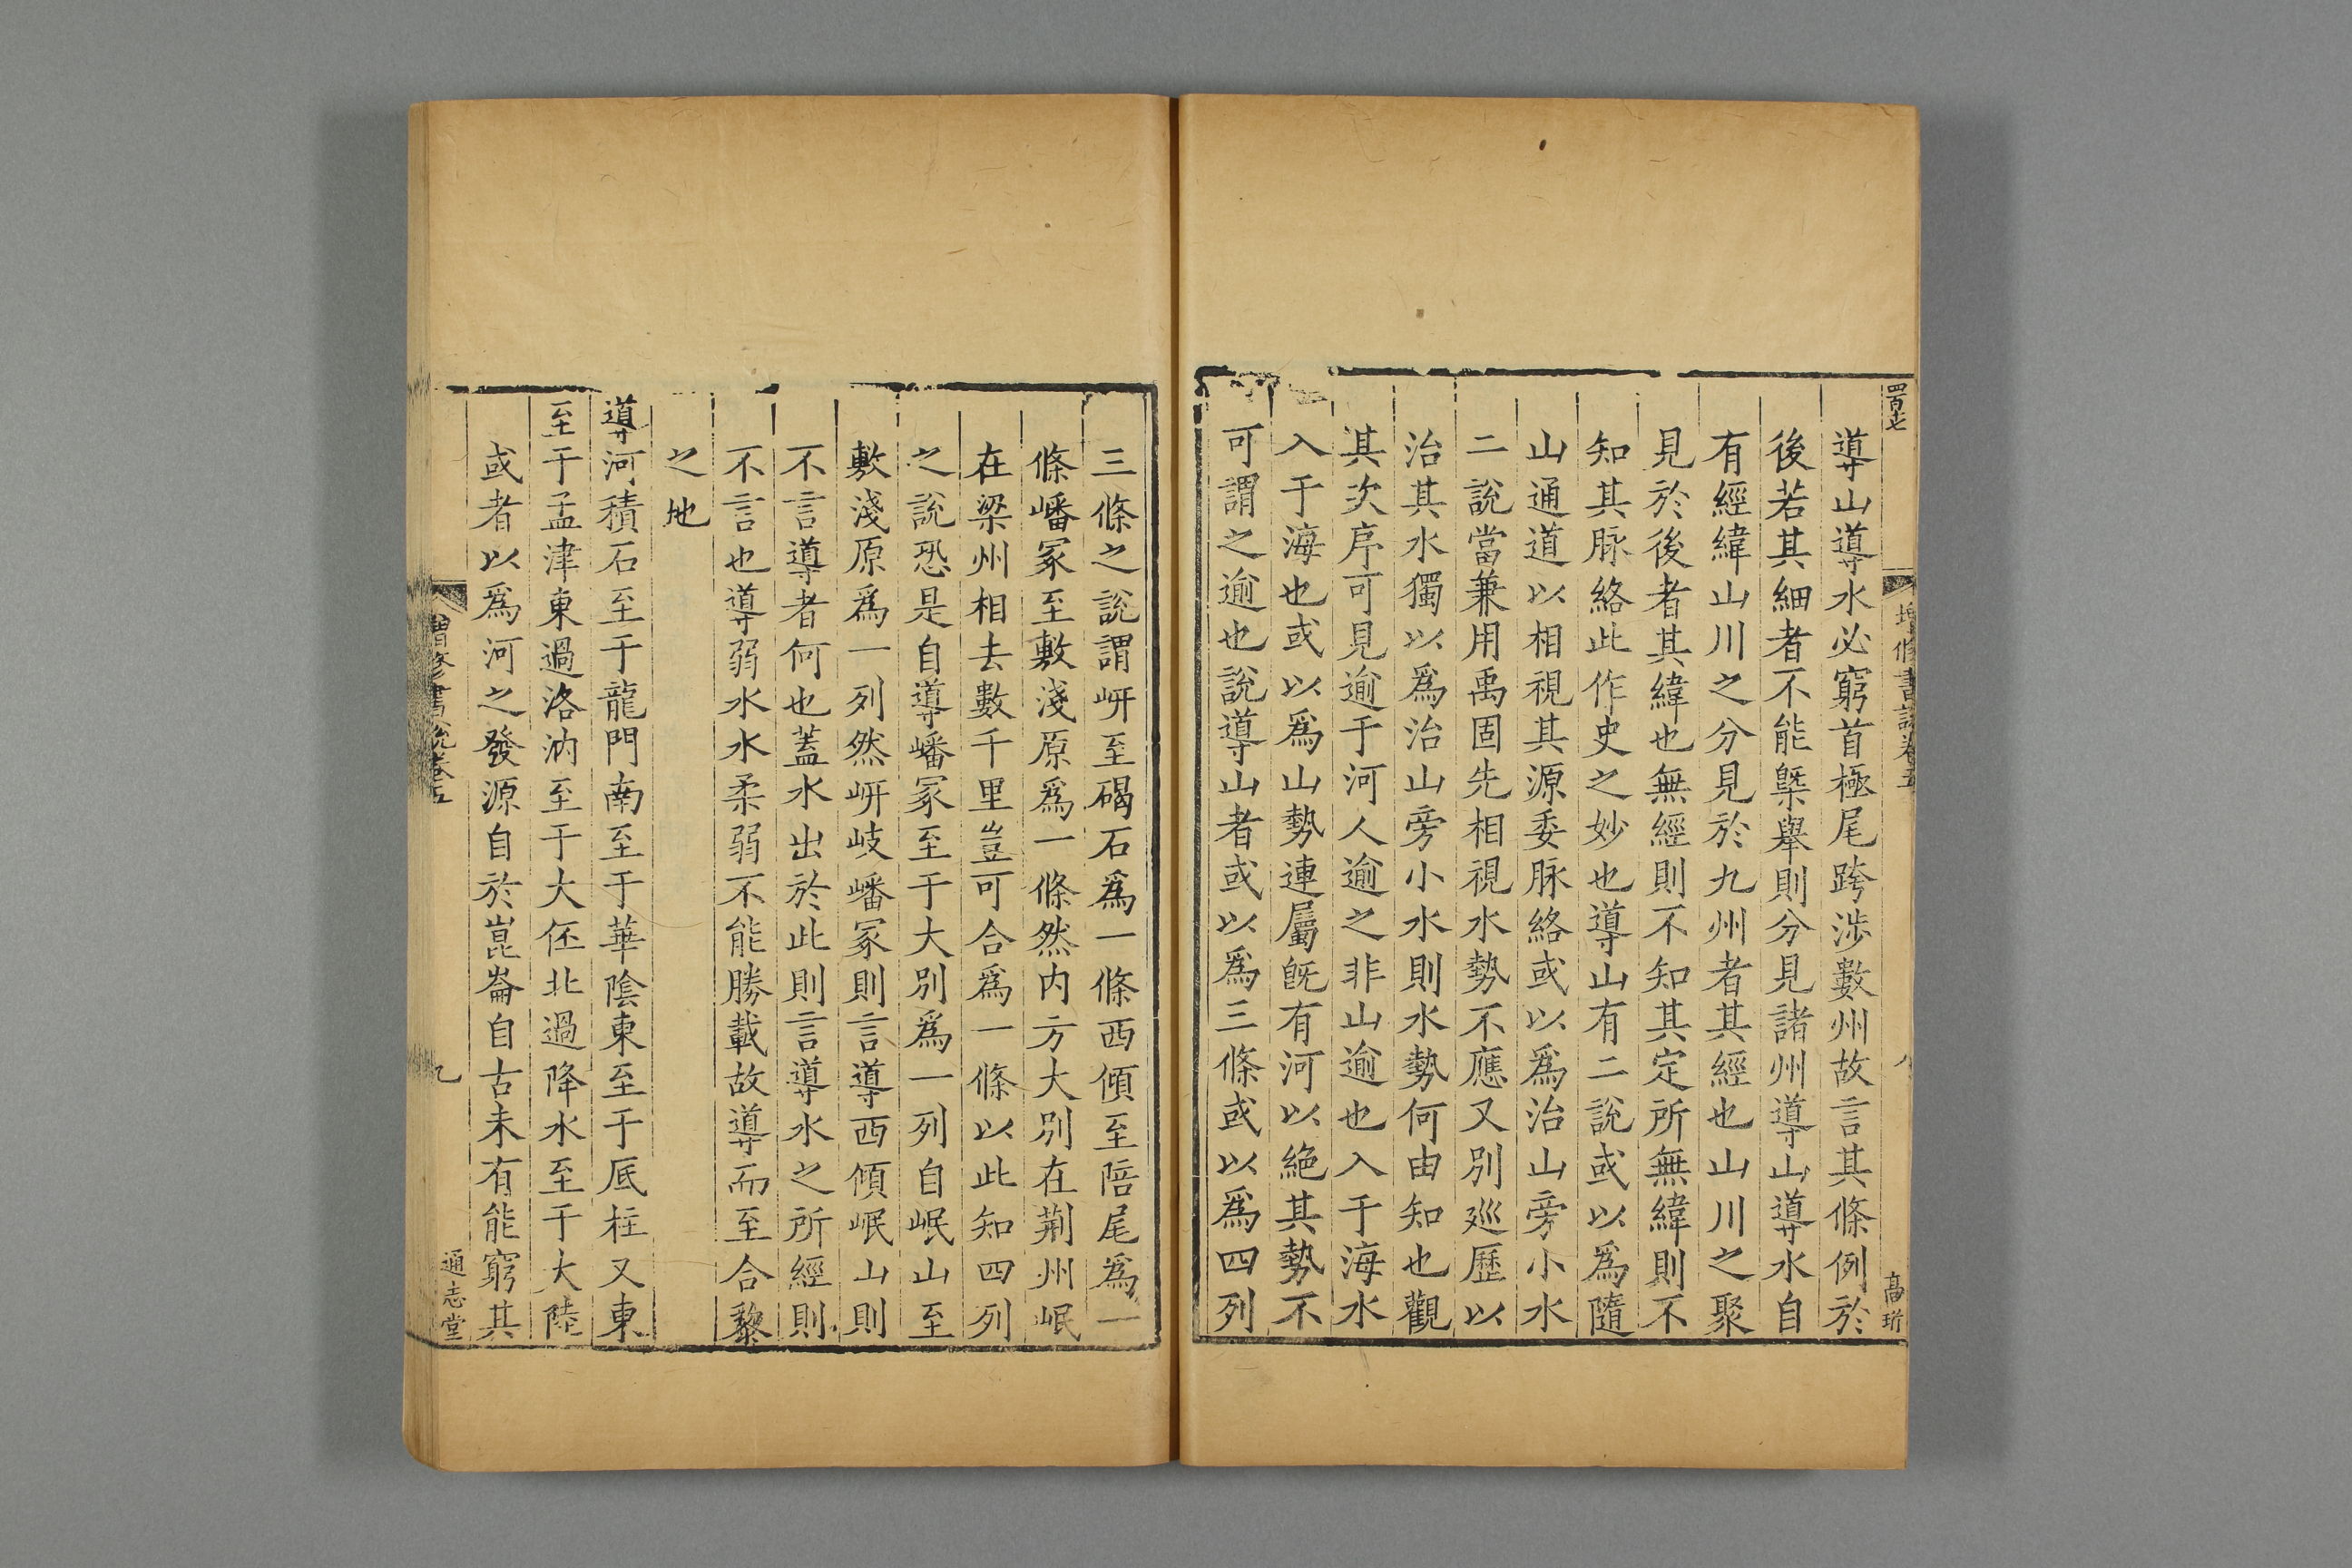 四百七
增修書說卷五
八
高珩
導山導水必窮首極尾跨涉數州故言其條例於
後若其細者不能槩舉則分見諸州導山導水自
有經緯山川之分見於九州者其經也山川之聚
見於後者其緯也無經則不知其定所無緯則不
知其脉絡此作史之妙也導山有二說或以爲隨
山通道以相視其源委脉絡或以爲治山旁小水
二說當兼用禹固先相視水勢不應又別廵歷以
治其水獨以爲治山旁小水則水勢何由知也觀
其次序可見逾于河人逾之非山逾也入于海水
入于海也或以爲山勢連屬旣有河以絶其勢不
可謂之逾也說導山者或以爲三條或以爲四列
三條之說謂岍至碣石爲一條西傾至陪尾爲一
條嶓冢至敷淺原爲一條然内方大別在荆州岷
在梁州相去數千里豈可合爲一條以此知四列
之說恐是自導嶓冢至于大別爲一列自岷山至
敷淺原爲一列然岍岐嶓冢則言導西傾岷山則
不言導者何也蓋水出於此則言導水之所經則
不言也導弱水水柔弱不能勝載故導而至合黎
之地
導河積石至于龍門南至于華陰東至于厎柱又東
至于孟津東過洛汭至于大伾北過降水至于大陸
或者以爲河之發源自於崑崙自古未有能窮其
增修書說卷五
九
通志堂